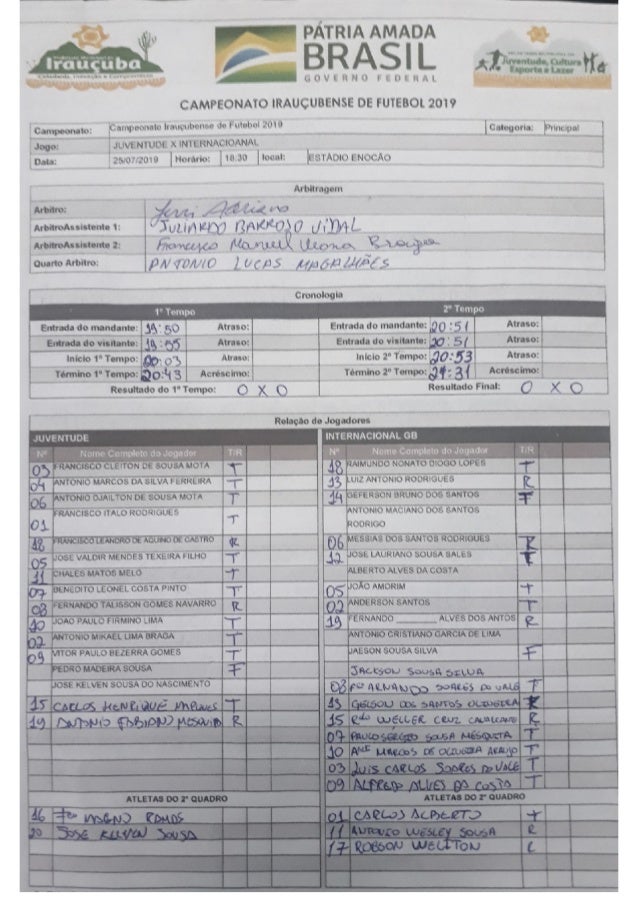 Irauçuba
PÁTRIA AMADA
BRASIL
GOVERNO FEDERAL
Juventude, Cultura
Esporte e Lazer
CAMPEONATO IRAUÇUBENSE DE FUTEBOL 2019
Campeonato: Campeonato Irauçubense de Futebol 2019 Categoria: Principal
Jogo: JUVENTUDE X INTERNACIOANAL
Data: 25/07/2019 Horário: 18:30 local: ESTÁDIO ENOCÃO
Arbitragem
Arbitro: Adriano
ArbitroAssistente 1: JULIARDO BARROSO VIDAL
ArbitroAssistente 2: Francisco Manuel
Quarto Arbitro: ANTONIO LUCAS MAGALHÃES
Cronologia
1º Tempo 2º Tempo
Entrada do mandante: 19:50 Atraso: Entrada do mandante: 20:51 Atraso:
Entrada do visitante: 19:55 Atraso: Entrada do visitante: 20:51 Atraso:
Início 1º Tempo: 20:03 Atraso: Início 2º Tempo: 20:53 Atraso:
Término 1º Tempo: 20:43 Acréscimo: Término 2º Tempo: 21:31 Acréscimo:
Resultado do 1º Tempo: 0 X 0 Resultado Final: 0 X 0
Relação de Jogadores
JUVENTUDE
Nº Nome Completo do Jogador T/R
03 FRANCISCO CLEITON DE SOUSA MOTA T
04 ANTONIO MARCOS DA SILVA FERREIRA T
06 ANTONIO DJAILTON DE SOUSA MOTA T
01 FRANCISCO ITALO RODRIGUES T
18 FRANCISCO LEANDRO DE AQUINO DE CASTRO R
05 JOSE VALDIR MENDES TEXEIRA FILHO T
11 CHALES MATOS MELO T
07 BENEDITO LEONEL COSTA PINTO T
08 FERNANDO TALISSON GOMES NAVARRO R
10 JOAO PAULO FIRMINO LIMA T
02 ANTONIO MIKAEL LIMA BRAGA T
09 VITOR PAULO BEZERRA GOMES T
PEDRO MADEIRA SOUSA F
JOSE KELVEN SOUSA DO NASCIMENTO
15 CARLOS HENRIQUE T
19 ANTONIO FABIANO MESQUITA R
ATLETAS DO 2º QUADRO
16 Fco MAGNO RAMOS
20 JOSE KELVEN SOUSA
INTERNACIONAL GB
Nº Nome Completo do Jogador T/R
18 RAIMUNDO NONATO DIOGO LOPES T
13 LUIZ ANTONIO RODRIGUES R
14 GEFERSON BRUNO DOS SANTOS F
ANTONIO MACIANO DOS SANTOS
RODRIGO
06 MESSIAS DOS SANTOS RODRIGUES
12 JOSE LAURIANO SOUSA SALES
ALBERTO ALVES DA COSTA
05 JOÃO AMORIM T
02 ANDERSON SANTOS T
19 FERNANDO ________ ALVES DOS ANTOS R
ANTONIO CRISTIANO GARCIA DE LIMA
JAESON SOUSA SILVA F
JACKSON SOUSA SILVA
08 Fco ARNANDO SOARES DO VALE T
13 GELSON DOS SANTOS OLIVEIRA R
15 WELLER CRUZ CAVALCANTE R
07 PAULO SERGIO SOUSA MESQUITA T
10 MARCOS DE OLIVEIRA ARAUJO T
03 LUIS CARLOS SOARES DO VALE T
09 ALFREDO ALVES DA COSTA T
ATLETAS DO 2º QUADRO
01 CARLOS ALBERTO T
11 ANTONIO WESLEY SOUSA R
17 ROBSON WELITON